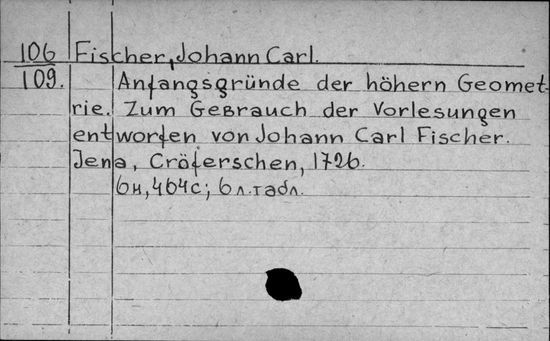 106 Fischer, Johann Carl.
109. Anfangsgründe der höhern Geomet-
rie. Zum Geвrauch der Vorlesungen
entworfen von Johann Carl Fischer.
Jena, Cröferschen, 1726.
6н, 464с; 6 л. табл.